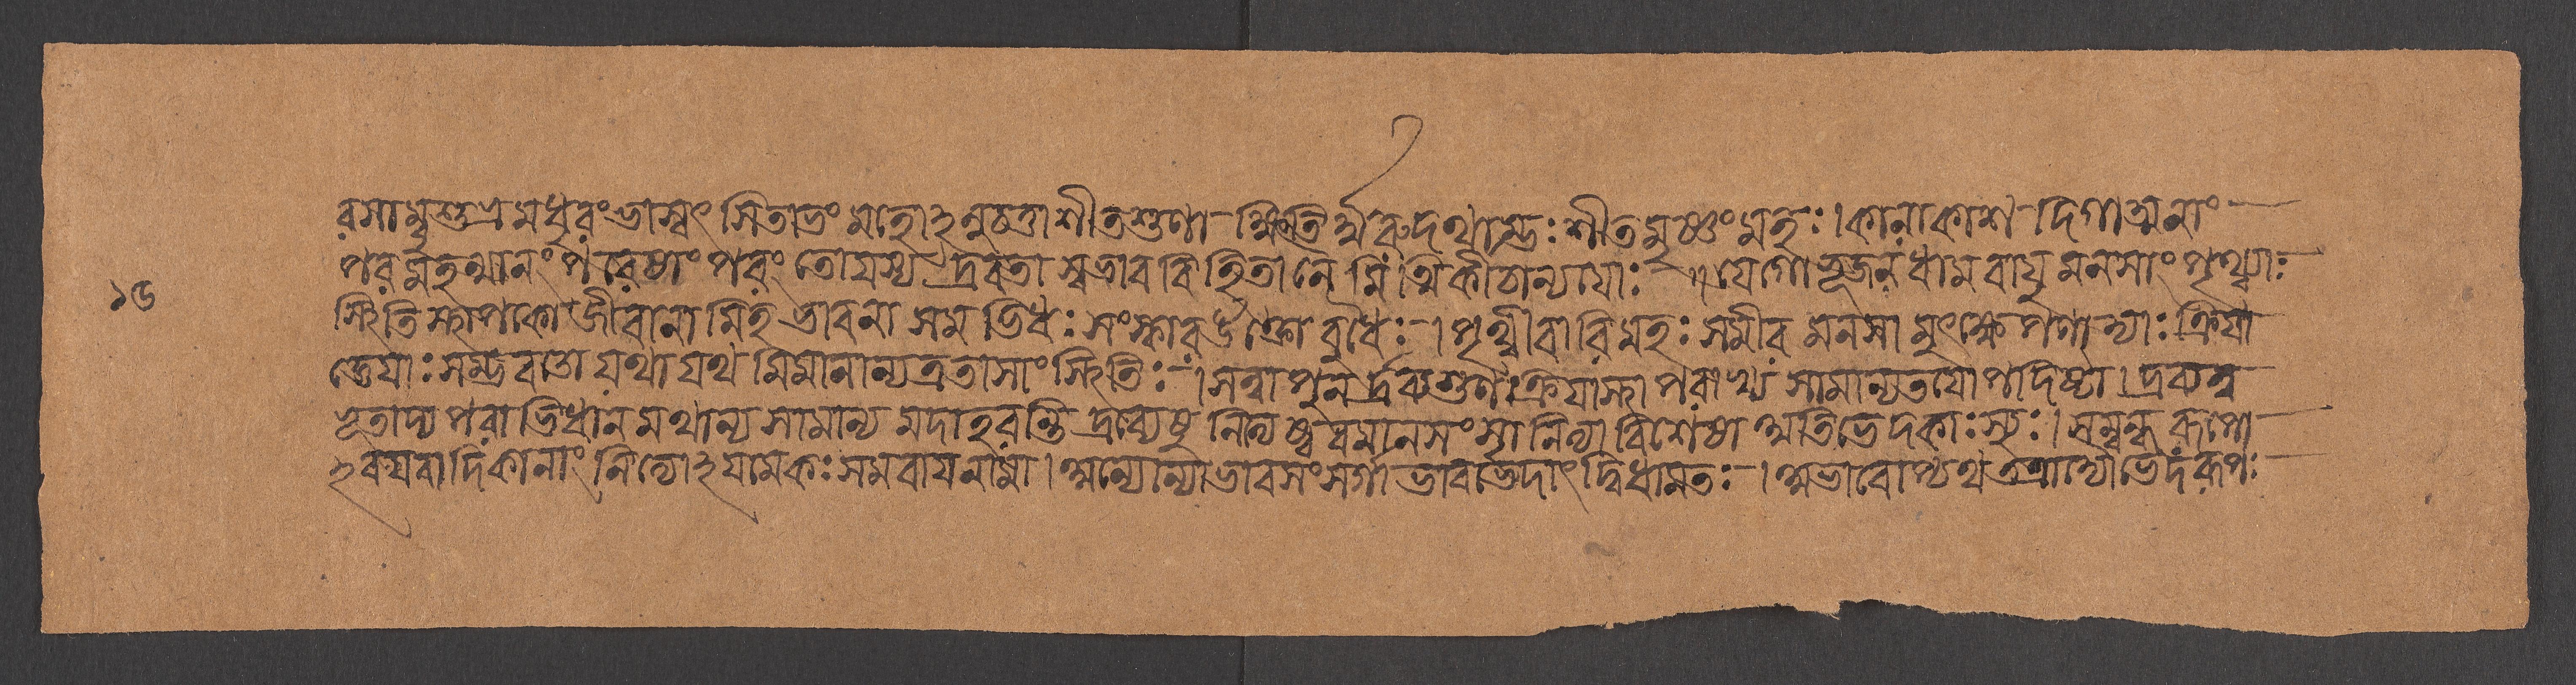 রসাম্বু শুভ্র মধুরং ভাস্বৎ সিতাভং মহোঽনুষ্ণতা শীতগুণা ক্ষিতির্ম্মরুদথাম্ভঃ শীতমুষ্ণং মহঃ। কালাকাশ দিগাত্মনাং
পরমমহন্মানং পরেষাং পরং তোযস্থ দ্রবতা স্বভাব বিহিতা নৈমিত্তিকীঠান্যযোঃ ॥ যেগো ভূজল ধাম বাযু মনসাং পৃথ্ব্যাঃ
স্থিতি স্থাপকো জীবানামিহ ভাবনা সমভিধঃ সংস্কার উক্তো বুধৈঃ। পৃথ্বী বারি মহঃ সমীর মনসামুৎক্ষেপণাদ্যাঃ ক্রিযা
জ্ঞেযাঃ সম্ভবতো যথাযথমিমানান্যত্র তাসাং স্থিতিঃ। সত্বা পুনর্দ্রব্যগুণক্রিযাস্থা পরাখ্য সামান্যতযোপদিষ্টা। দ্রব্যত্ব
ভূতাদ্যপরাভিধানমথান্য সামান্যমদাহরন্তি দ্রব্যেষু নিত্যেষ্ববমানসংস্থা নিত্যা বিশেষা অতিভেদকাঃ স্যুঃ। সম্বন্ধরূপো
ঽবযবাদিকানাং নিত্যোঽযমেকঃ সমবাযনামা। অন্যোন্যাভাবসংসর্গাভাবভেদাৎ দ্বিধামতঃ। অভাবোপ্যথ তত্রাদ্যো ভেদরূপঃ